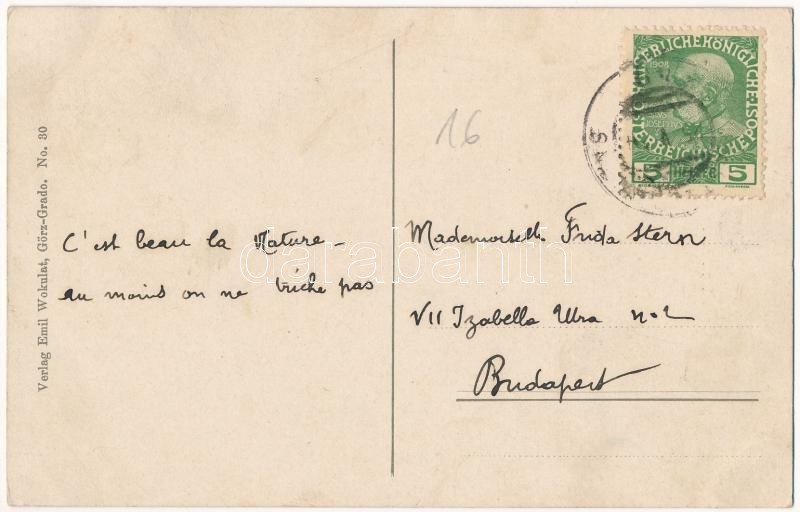 Verlag Emil Wokulat, Görz-Grado. No. 30
C'est beau la Nature -
au moins on ne triche pas
16
KAISERLICHE KÖNIGLICHE
ÖSTERREICHISCHE POST
1908
5 HELLER 5
Mademoiselle Frida Stern
VII Izabella Utza no 2
Budapest
darabanth